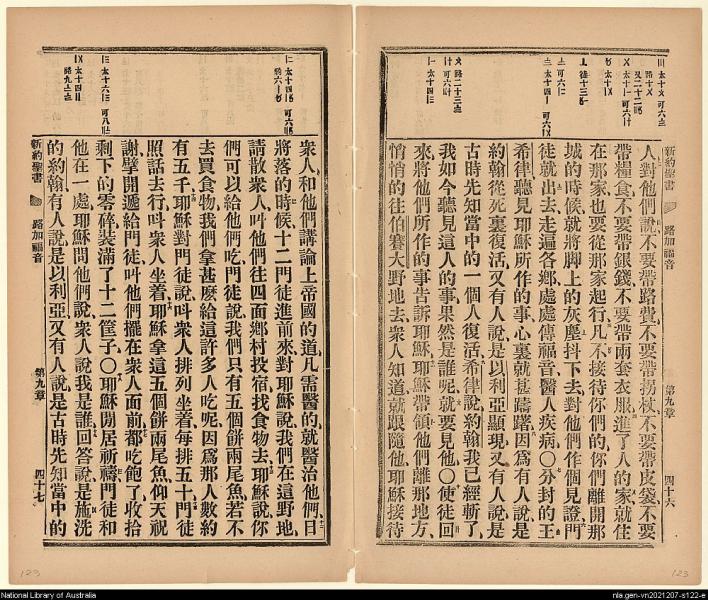 新約聖書 路加福音 第九章 四十六
人對他們說、不要帶路費、不要帶拐杖、不要帶皮袋、不要
帶糧食、不要帶銀錢、不要帶兩套衣服、進了人的家、就住
在那家、也要從那家起行、凡不接待你們的、你們離開那
城的時候、就將腳上的灰塵抖下去、對他們作個見證、門
徒就出去、走遍各鄉、處處傳福音、醫人疾病、〇分封的王
希律聽見耶穌所作的事、心裏就甚躊躇、因爲有人說、是
約翰從死裏復活、又有人說、是以利亞顯現、又有人說、是
古時先知當中的一個人復活、希律說、約翰我已經斬了、
我如今聽見這人的事、果然是誰呢、就要見他、〇使徒回
來、將他們所作的事告訴耶穌、耶穌帶領他們離那地方、
悄悄的往伯賽大野地去、衆人知道就跟隨他、耶穌接待
衆人、和他們講論上帝國的道、凡需醫的、就醫治他們、日
將落的時候、十二門徒進前來對耶穌說、我們在這野地、
請散衆人、叫他們往四面鄉村投宿找食物去、耶穌說、你
們可以給他們吃、門徒說、我們只有五個餅、兩尾魚、若不
去買食物、我們拿甚麼給這許多人吃呢、因爲那人數約
有五千、耶穌對門徒說、叫衆人排列坐着、每排五十、門徒
照話去行、叫衆人坐着、耶穌拿這五個餅、兩尾魚、仰天祝
謝、擘開遞給門徒、叫他們擺在衆人面前、都吃飽了、收拾
剩下的零碎、裝滿了十二筐子、〇耶穌閒居祈禱、門徒和
他在一處、耶穌問他們說、衆人說我是誰、回答說、是施洗
的約翰、有人說、是以利亞、又有人說、是古時先知當中的
新約聖書 路加福音 第九章 四十七
123
123
National Library of Australia
nla.gen-vn2021207-s122-e